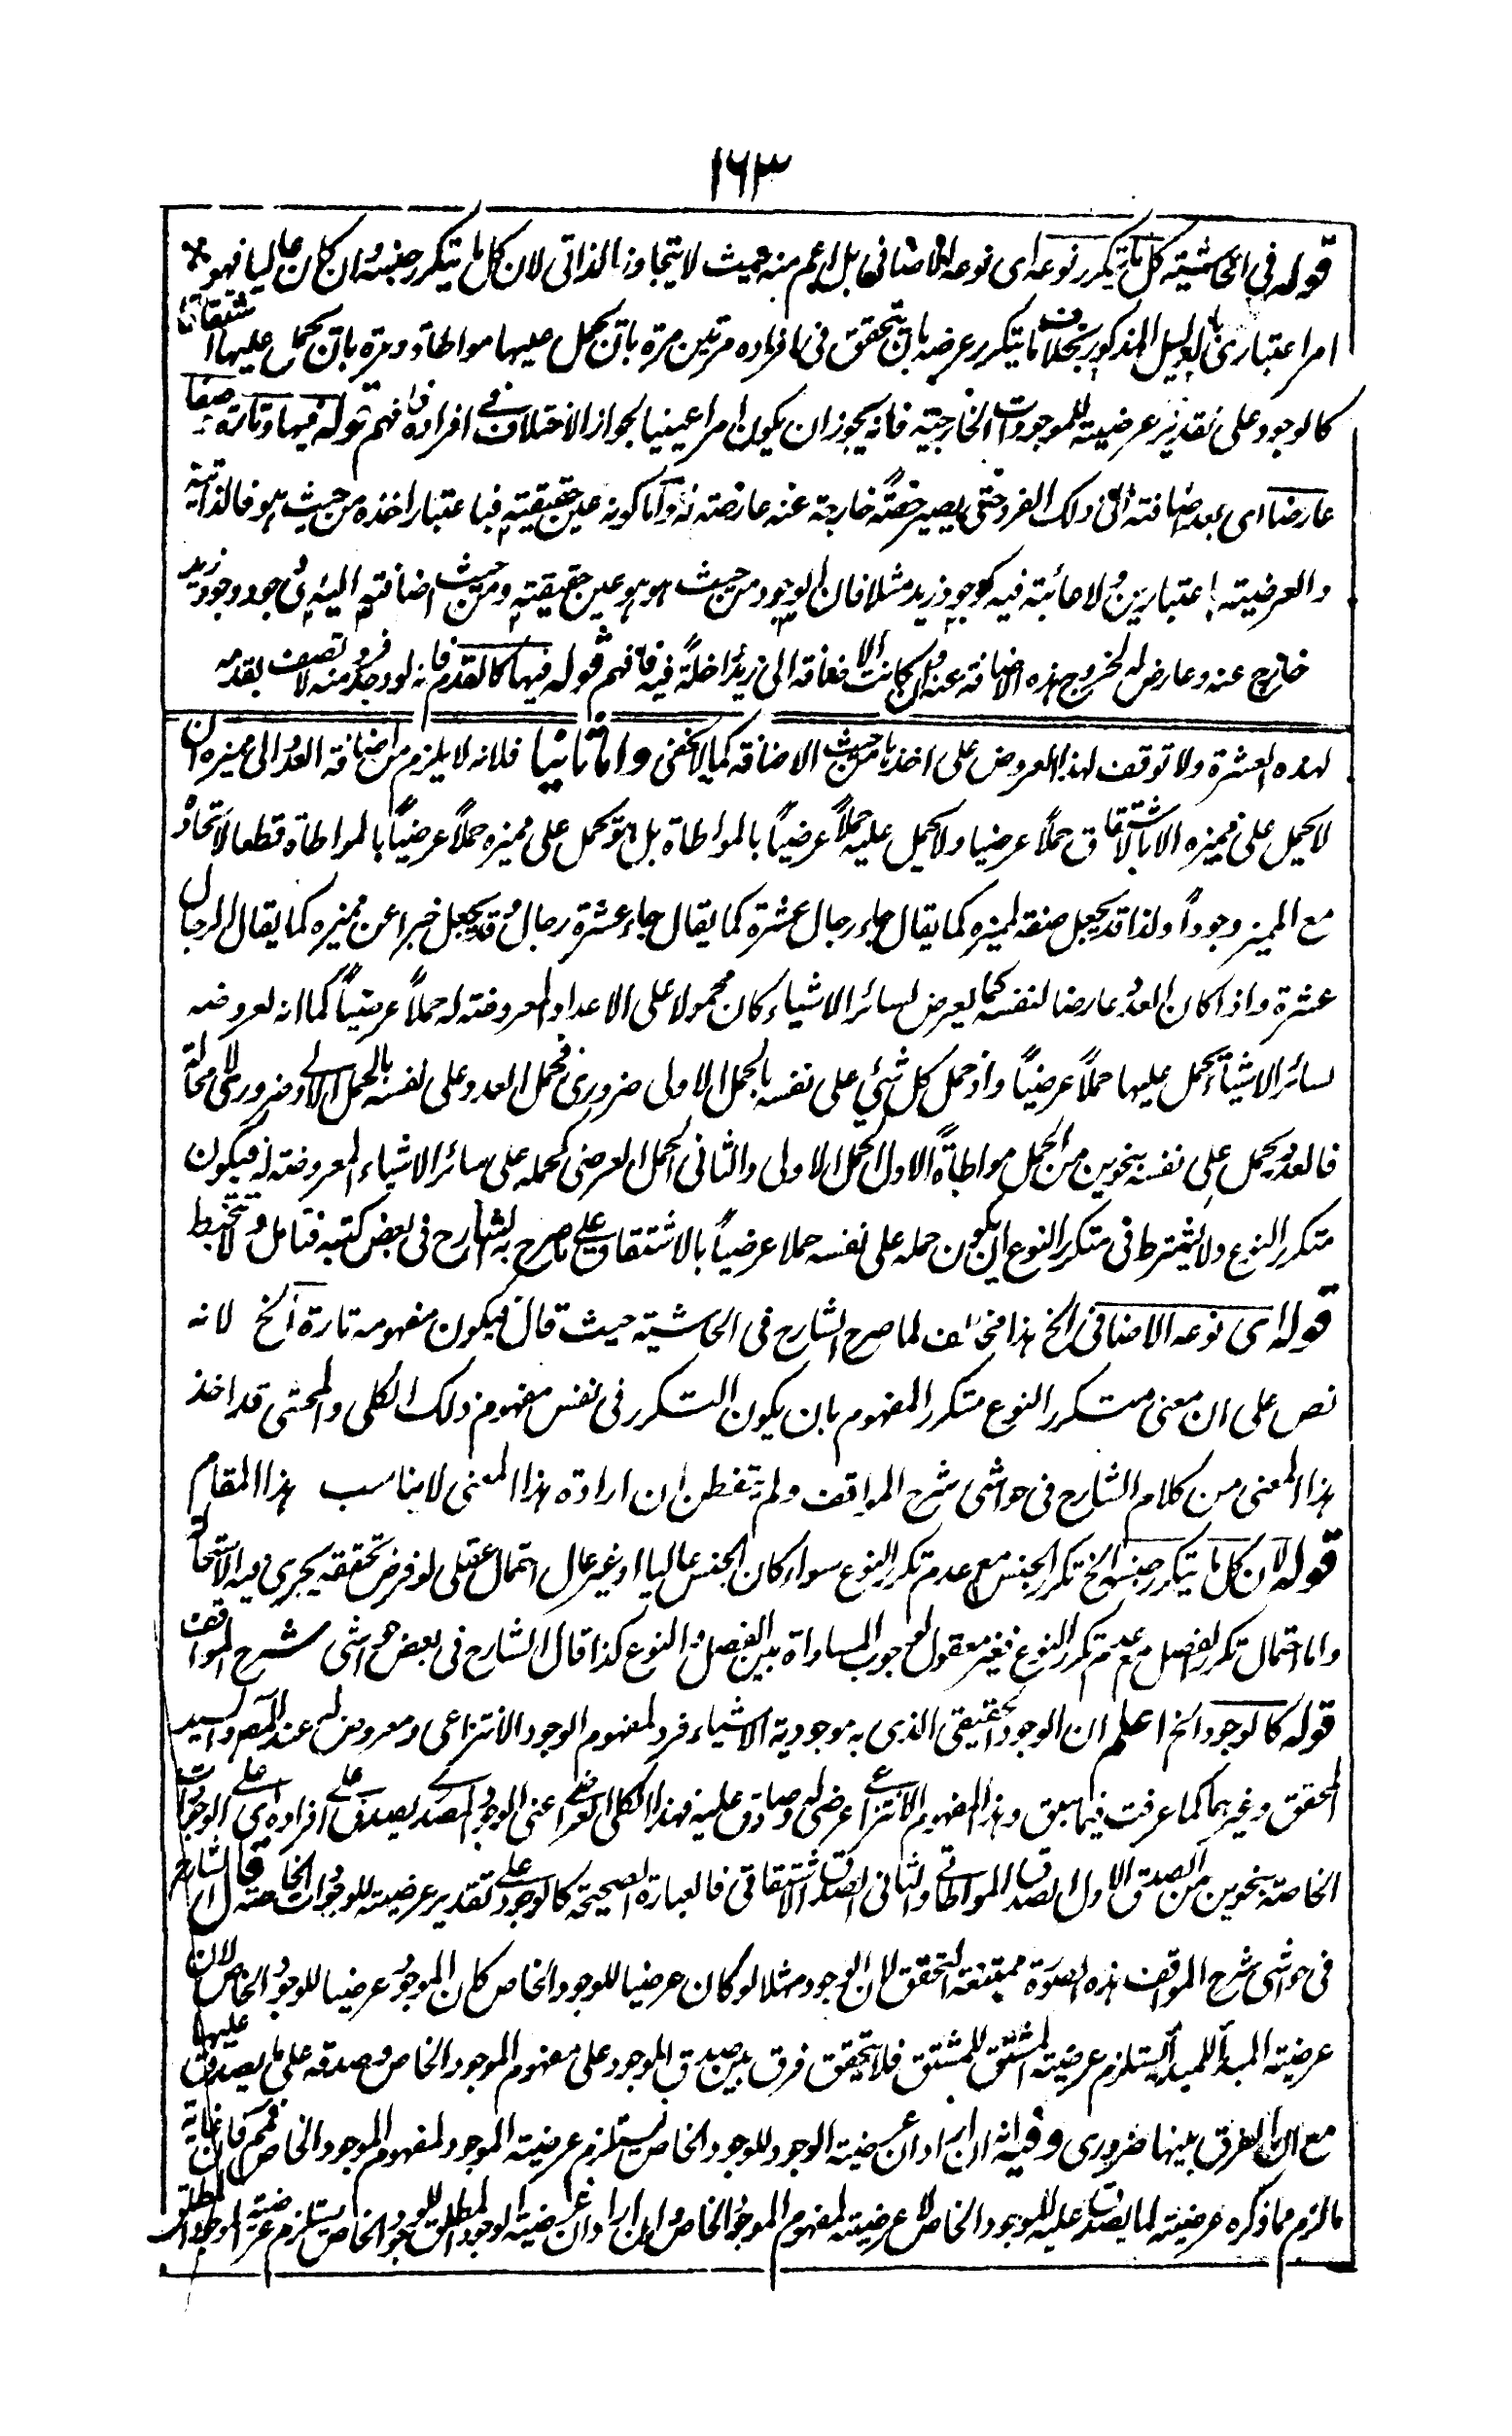 ١٦٣
قوله في الحاشية كل ما يتكرر نوعه اى نوعه الاضافى بل اعم منه بحيث لا يتجاوز الذاتى لان كل ما يتكرر جنسه وان كان عاليا فهو
امر اعتبارى بالدليل المذكور بخلاف ما يتكرر عرضه بان يتحقق فى افراده مرتين مرة بان يحمل عليها مواطاة ومرة بان يحمل عليها اشتقاقا
كالوجود على تقدير عرضيته للموجودات الخارجية فانه يجوز ان يكون امرا عينيا لجواز الاختلاف فى افراده فافهم قوله فيها وتارة وصفا
عارضا اى بعد اضافته الى ذلك الفرد حتى يصير حصة خارجة عنه عارضة له واما كونه عين حقيقته فباعتبار اخذه من حيث هو فالذاتية
والعرضية باعتبارين ولا عائبة فيه كوجود زيد مثلا فان الوجود من حيث هو هو عين حقيقته ومن حيث اضافته اليه اى وجود وجود زيد
خارج عنه وعارض له لخروج هذه الاضافة عنه وان كانت الاضافة الى زيد داخلة فيه فافهم قوله فيها كالقدم فانه لو وجد فرد منه لاتصف بقدمه
لهذه العشرة ولا توقف لهذا العروض على اخذها من حيث الاضافة كما لا يخفى واما ثانيا فلانه لا يلزم من اضافة العدد الى مميزه ان
لا يحمل على مميزه الا بالاشتقاق حملا عرضيا ولا يحمل عليه حملا عرضيا بالمواطاة بل هو يحمل على مميزه حملا عرضيا بالمواطاة قطعا لاتحاده
مع المميز وجودا ولذا قد يجعل صفة لمميزه كما يقال جاء رجال عشرة كما يقال جاء عشرة رجال وقد يجعل خبرا عن مميزه كما يقال الرجال
عشرة واذا كان العدد عارضا لنفسه كما يعرض لسائر الاشياء كان محمولا على الاعداد المعروضة له حملا عرضيا كما انه لعروضه
لسائر الاشياء يحمل عليها حملا عرضيا واذ حمل كل شئ على نفسه بالحمل الاولى ضرورى فحمل العدد على نفسه بالحمل الاولى ضرورى لا محالة
فالعدد يحمل على نفسه بنحوين من الحمل مواطاة الاول الحمل الاولى والثانى الحمل العرضى كحمله على سائر الاشياء المعروضة له فيكون
متكرر النوع ولا يشترط فى متكرر النوع ان يكون حمله على نفسه حملا عرضيا بالاشتقاق على ما صرح به الشارح فى بعض كتبه فتامل ولا تتخبط
قوله اى نوعه الاضافى الخ هذا مخالف لما صرح الشارح فى الحاشية حيث قال فيكون مفهومه تارة الخ لانه
نص على ان معنى متكرر النوع متكرر المفهوم بان يكون التكرر فى نفس مفهوم ذلك الكلى والمحشى قد اخذ
هذا المعنى من كلام الشارح فى حواشى شرح المواقف ولم يتفطن ان ارادة هذا المعنى لا يناسب هذا المقام
قوله لان كل ما يتكرر جنسه الخ تكرر الجنس مع عدم تكرر النوع سواء كان الجنس عاليا او غير عال احتمال عقلى لو فرض تحققه يجرى فيه الاستحالة
واما احتمال تكرر الفصل مع عدم تكرر النوع فغير معقول لوجوب المساواة بين الفصل والنوع كذا قال الشارح فى بعض حواشى شرح المواقف
قوله كالوجود الخ اعلم ان الوجود الحقيقى الذى به موجودية الاشياء فرد لمفهوم الوجود الانتزاعى ومعروض له عند المص والسيد
المحقق وغيرهما كما عرفت فيما سبق وهذا المفهوم الانتزاعى عرضى له وصادق عليه فهذا الكلى العرضى اعنى الوجود المصدرى يصدق على افراده اى على الوجودات
الخاصة بنحوين من الصدق الاول الصدق المواطاتى والثانى الصدق الاشتقاقى فالعبارة الصحيحة كالوجود على تقدير عرضيته للوجودات الخاصة قال الشارح
فى حواشى شرح المواقف هذه الصورة ممتنعة التحقق لان الوجود مثلا لو كان عرضيا للوجود الخاص كان الموجود عرضيا للموجود الخاص لان
عرضية المبدأ للمبدأ يستلزم عرضية المشتق للمشتق فلا يتحقق فرق بين صدق الموجود على مفهوم الموجود الخاص وصدقه على ما يصدق عليها
مع ان الفرق بينها ضرورى وفيه انه ان اراد ان عرضية الوجود للوجود الخاص يستلزم عرضية الموجود لمفهوم الموجود الخاص فمم فان غاية
ما لزم مما ذكره عرضيته لما يصدق عليه الموجود الخاص لا عرضيته لمفهوم الموجود الخاص وان اراد ان عرضية الوجود المطلق للوجود الخاص يستلزم عرضية الموجود المطلق